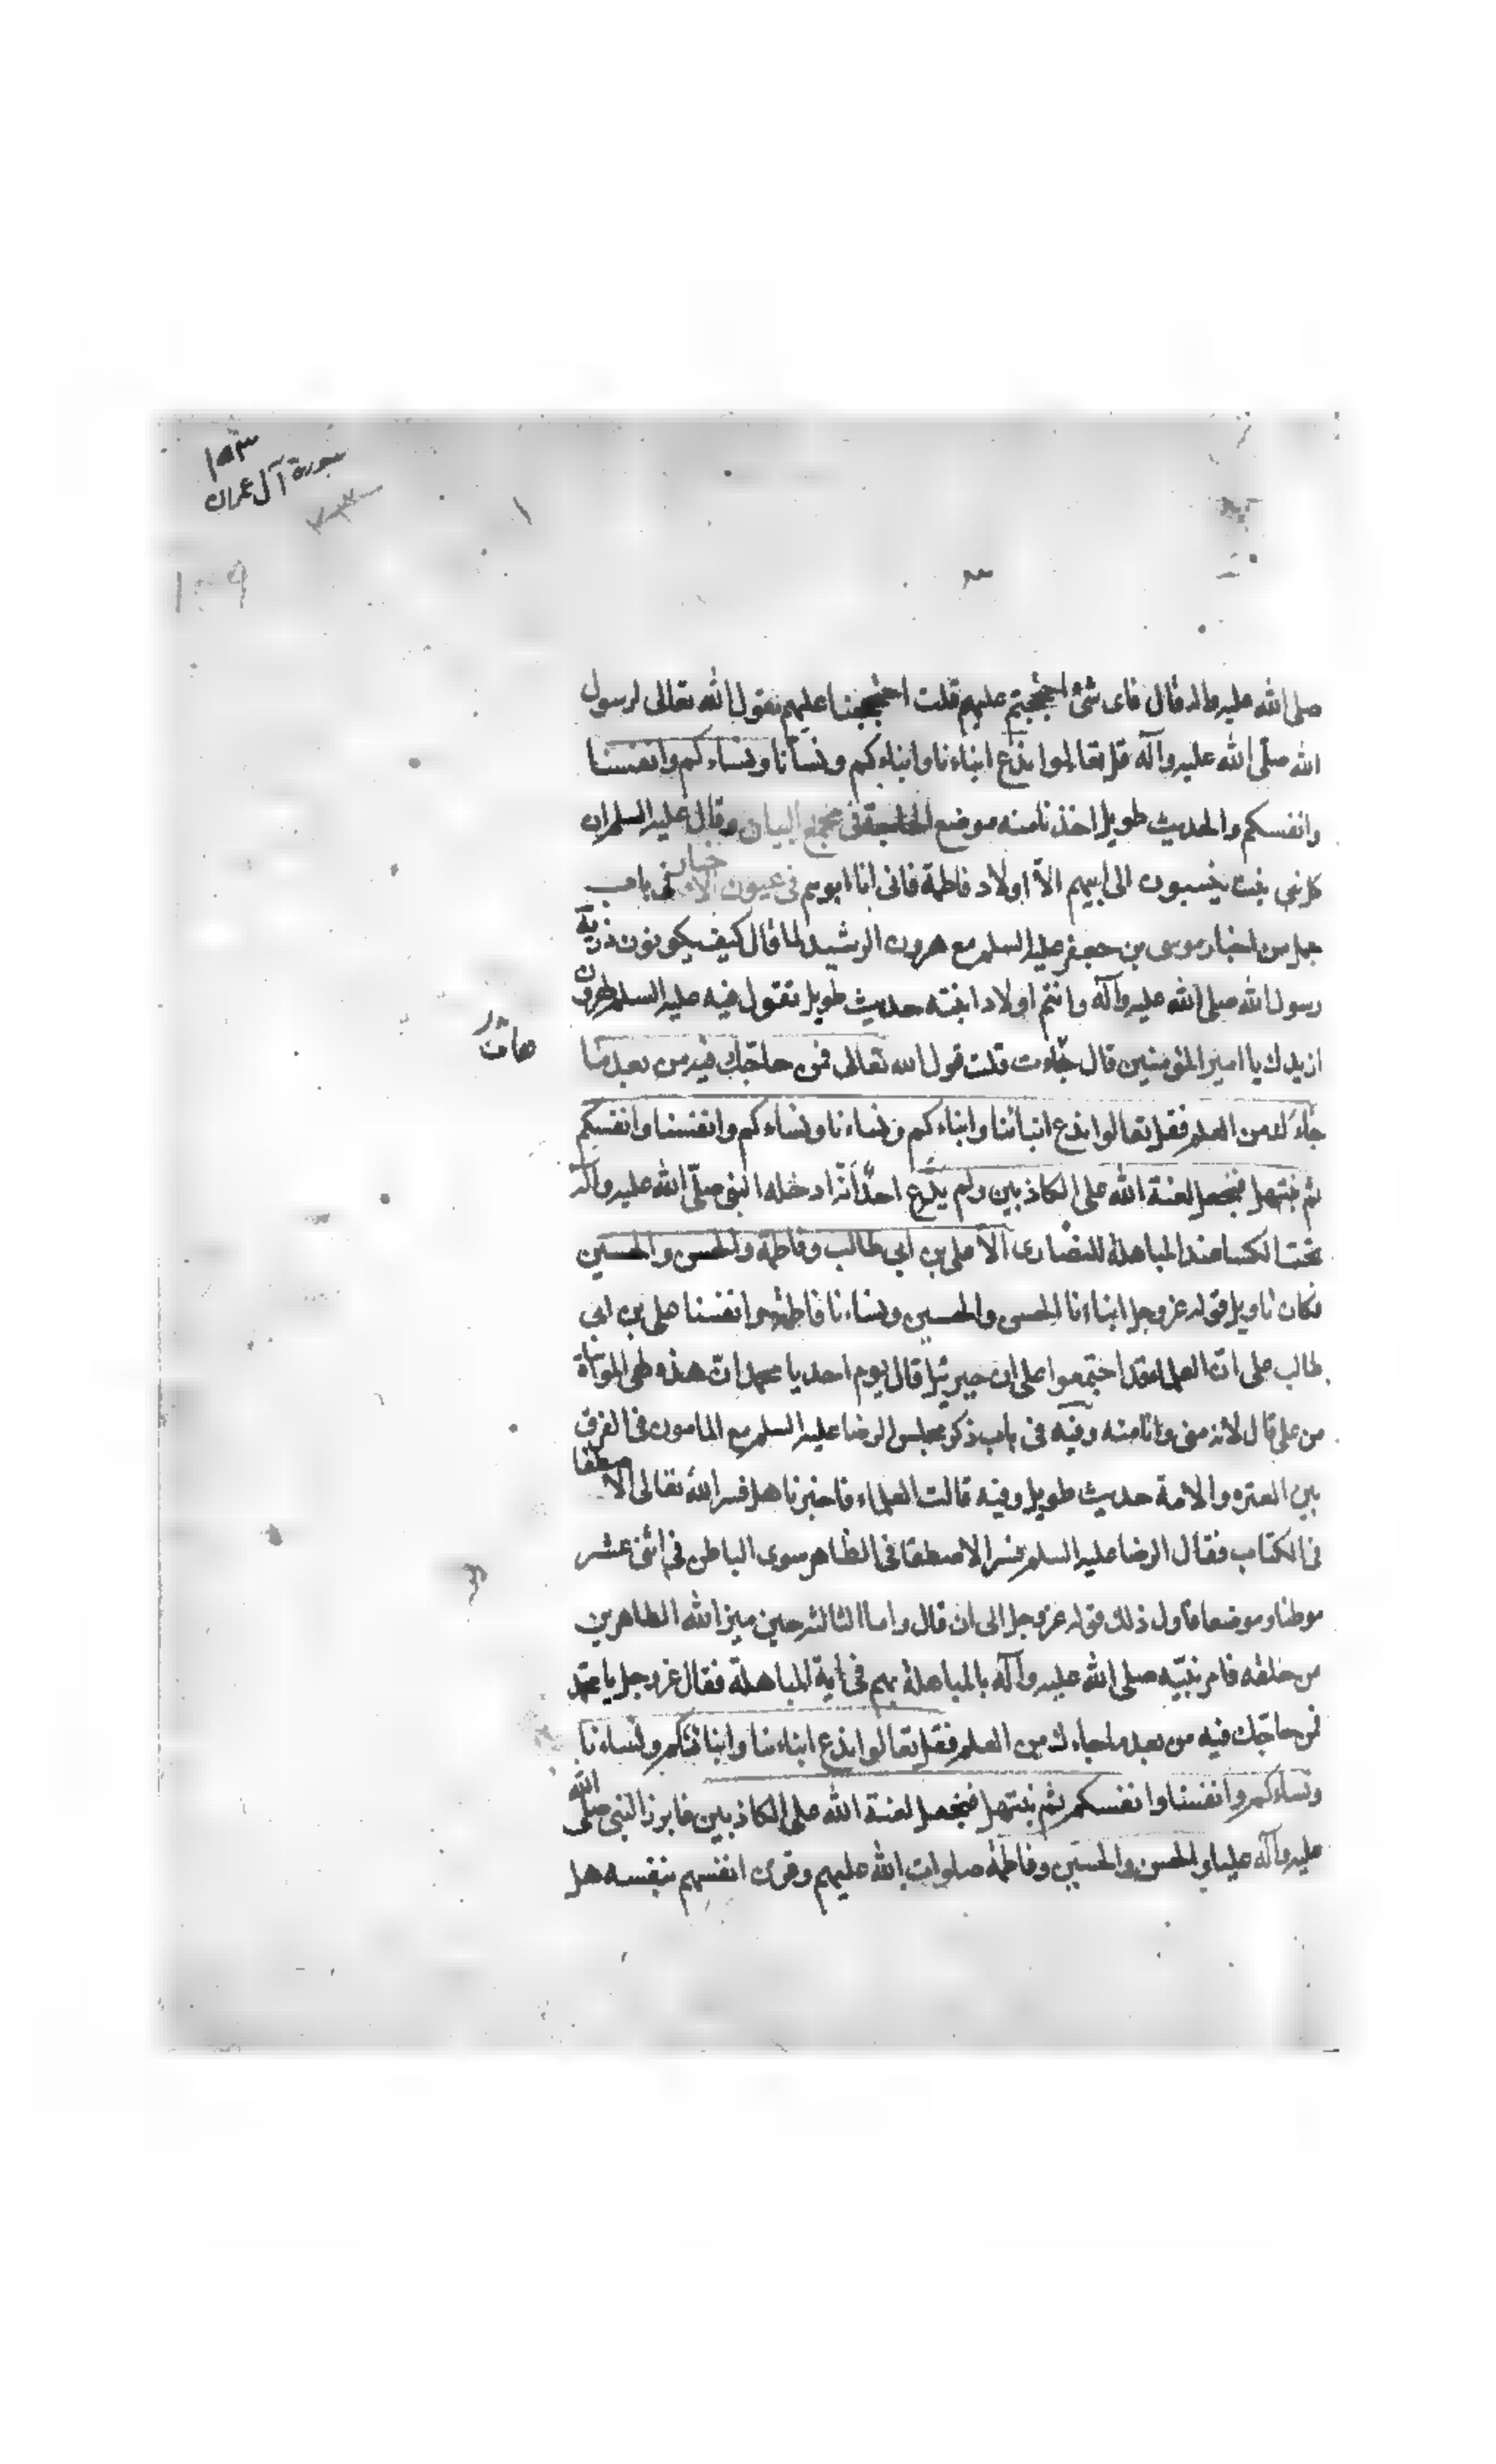 ١٥٣
سورة آل عمران
صلى الله عليه واله قال فاى شئ احتججتم عليهم قلت احتججنا عليهم بقول الله تعالى لرسول
الله صلّى الله عليه وآله قل تعالوا ندع ابناءنا وابناءكم ونسآنا ونساءكم وانفسنا
وانفسكم والحديث طويل اخذنا منه موضع الحاجة فى مجمع البيان وقال عليه السلم ان
كل بنى بنت ينسبون الى ابيهم الاّ اولاد فاطمة فانى انا ابوهم فى عيون الاخبار فى باب
جمل من اخبار موسى بن جعفر عليه السلم مع هرون الرشيد لما قال كيف تكونون ذرية
رسول الله صلى الله عليه وآله وانتم اولاد ابنته حديث طويل نقول فيه عليه السلم لهرون
ازيدك يا امير المؤمنين قال هات قلت قول الله تعالى فمن حاجّك فيه من بعد ما
هات
جاءك من العلم فقل تعالوا ندع ابنائنا وابناءكم ونساءنا ونساءكم وانفسنا وانفسكم
ثم نبتهل فنجعل لعنة الله على الكاذبين ولم يدّع احدٌ انّه ادخله النبى صلّى الله عليه وآله
تحت الكسا عند المباهلة للنصارى الاّ على بن ابى طالب وفاطمة والحسن والحسين
فكان تاويل قوله عز وجل ابناءنا الحسن والحسين ونساءنا فاطمة وانفسنا على بن ابى
طالب على انّ العلماء قد اجتمعوا على ان جبرئيل قال يوم احد يا محمد انّ هذه لهى المواساة
من على قال لانه منى وانا منه وفيه فى باب ذكر مجلس الرضا عليه السلم مع المامون فى الفرق
بين العتره والامة حديث طويل وفيه قالت العلماء فاخبرنا هل فسر الله تعالى الاصطفا
فى الكتاب فقال الرضا عليه السلم فسر الاصطفا فى الظاهر سوى الباطن فى اثنى عشر
موطنا وموضعا فاول ذلك قوله عز وجل الى ان قال واما الثالثه حين ميز الله الطاهرين
من خلقه فامر نبيّه صلى الله عليه وآله بالمباهلة بهم فى آية المباهلة فقال عز وجل يا محمد
فمن حاجّك فيه من بعد ما جاءك من العلم فقل تعالوا ندع ابناءنا وابنائكم ونساءنا
ونساءكم وانفسنا وانفسكم ثم نبتهل فنجعل لعنة الله على الكاذبين فابرز النبى صلى الله
عليه وآله عليا والحسن والحسين وفاطمة صلوات الله عليهم وقرن انفسهم بنفسه هل